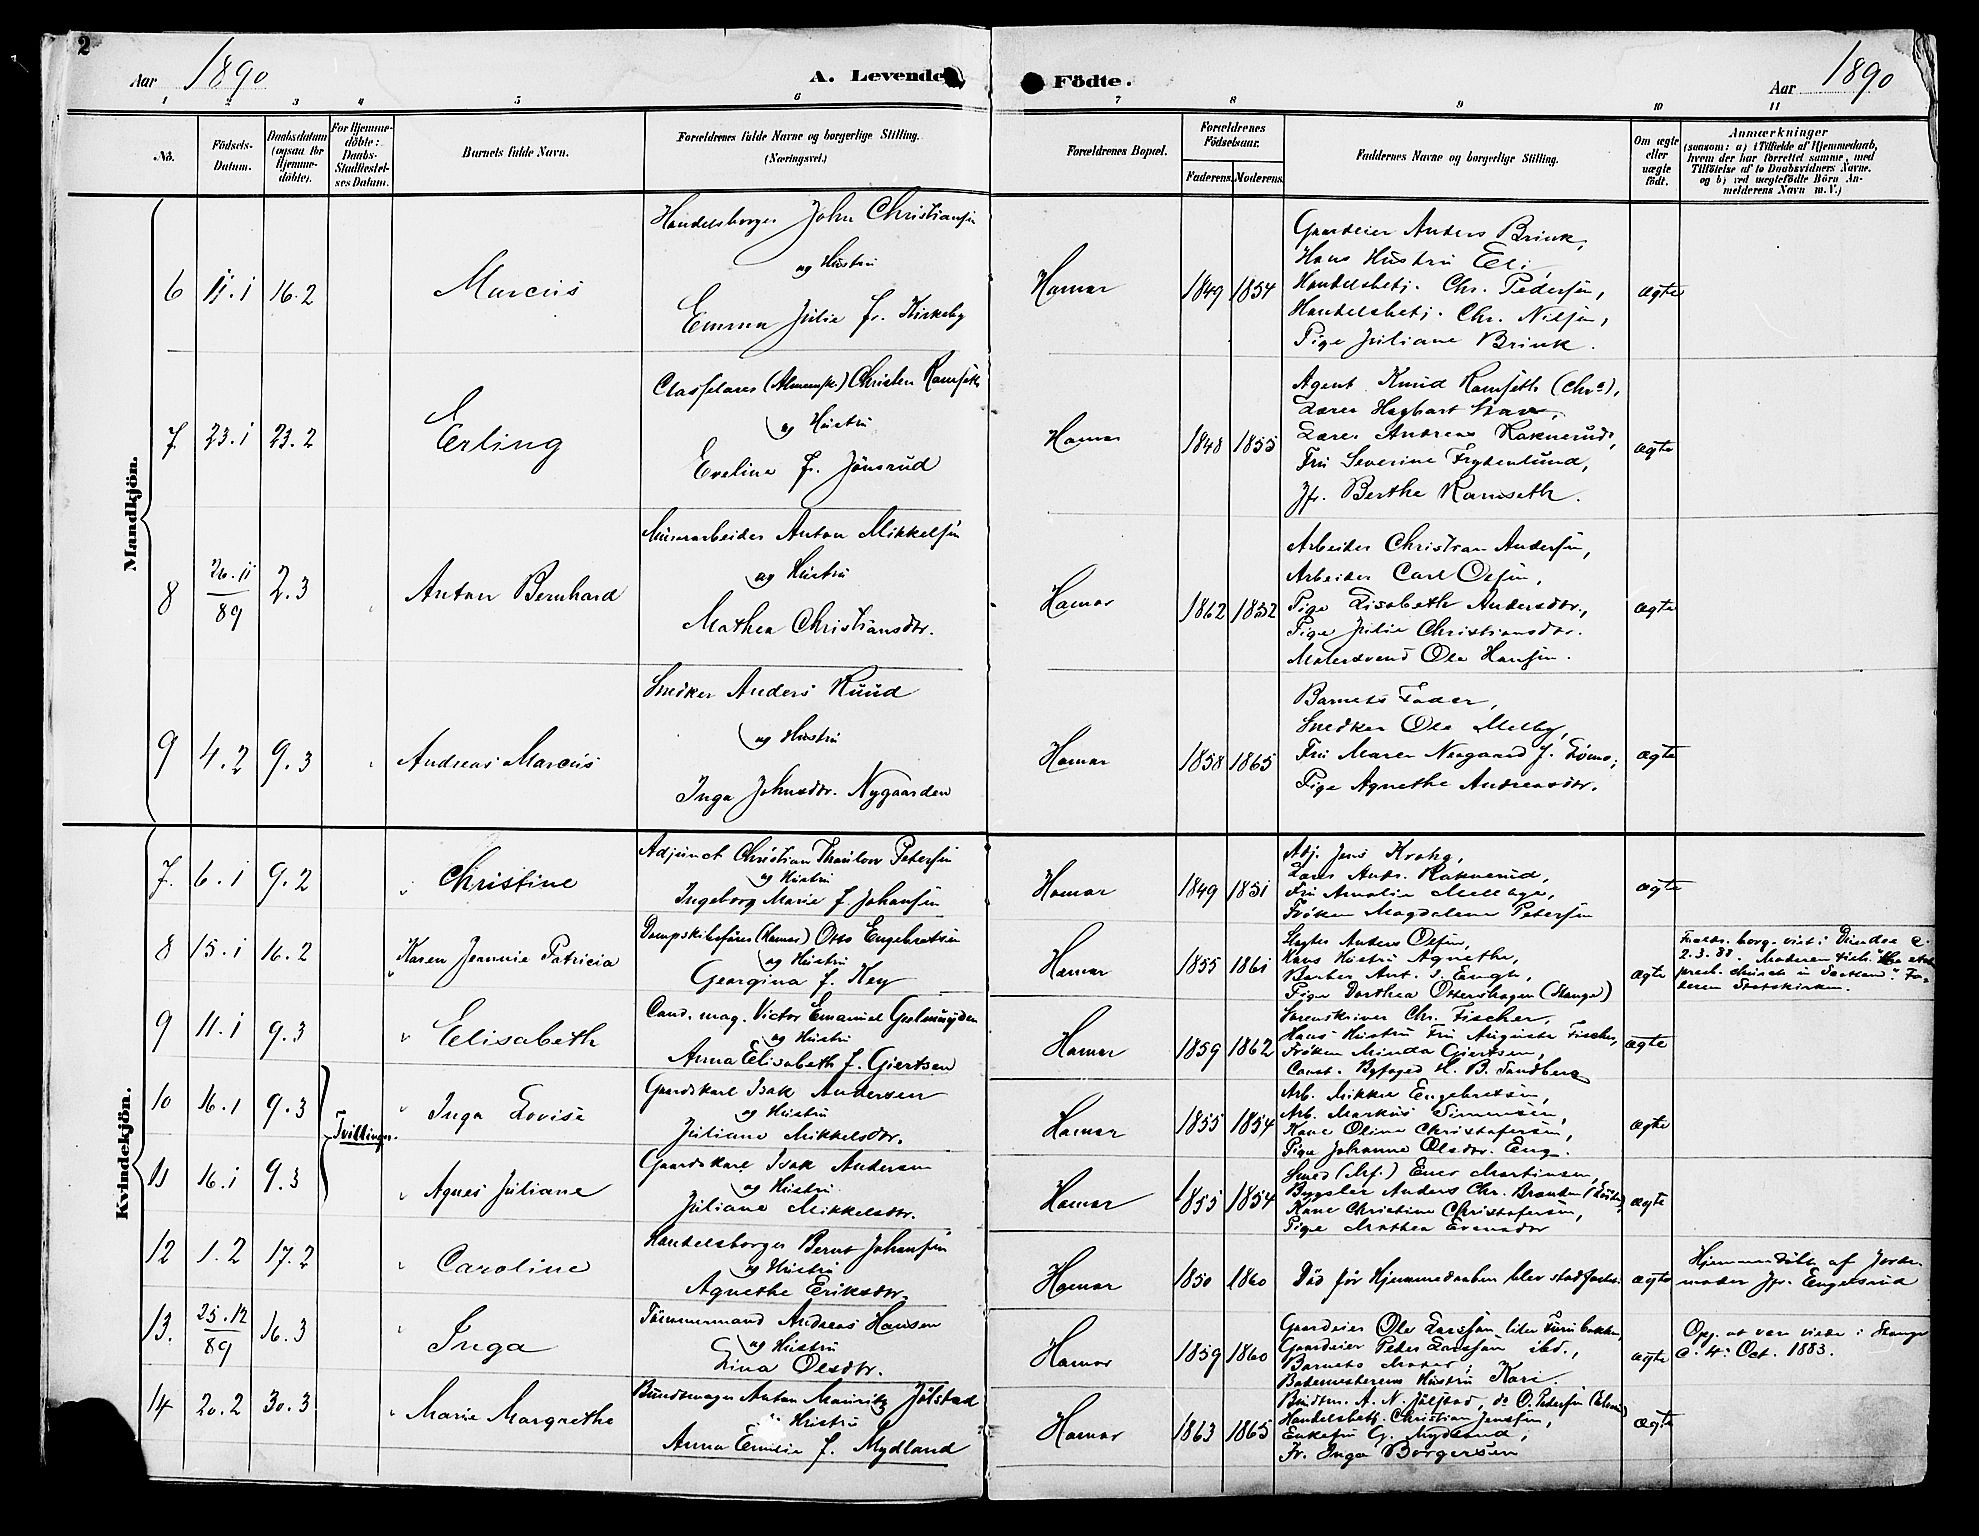 2
Aar 1890
A. Levende
Födte.
Aar 1890
1 2 3 4 5 6 7 8 9 10 11
No.
Födsels-
Datum.
Daabsdatum
(ogsaa for
Hjemme-
döbte).
For Hjemme-
döbte:
Daabs-
Stadfæstel-
ses Datum.
Barnets fulde Navn.
Forældrenes fulde Navne og borgerlige Stilling.
(Næringsvei.)
Forældrenes Bopæl.
Forældrenes
Födselsaar.
Faderens. Moderens.
Faddernes Navne og borgerlige Stilling.
Om ægte
eller
uægte
födt.
Anmærkninger
(saasom: a) i Tilfælde af Hjemmedaab,
hvem der har forrettet samme, med
Tilföielse af to Daabsvidners Navne,
og b) ved uægtefödte Börn An-
melderens Navn m. V.)
Mandkjön.
6 11.1 16.2
Marcus
Handelsborger John Christiansen
og Hustru
Emma Julie f. Kirkeby
Hamar
1849 1854
Gaardeier Anders Brink,
Hans Hustru Eli
Handelsbetj. Chr. Pedersen,
Handelsbetj. Chr. Nilsen,
Pige Juliane Brink.
ægte
7 23.1 23.2
Erling
Christen Ramseth
og Hustru
Eveline f. Jönsrud
Hamar
1848 1855
Agent Knud Ramseth (Chra),
Lærer Hagbart
Lærer Andreas Raknerud,
Fru Severine Frydenlund,
Jfr. Berthe Ramseth.
ægte
8 26.11/89 2.3
Anton Bernhard
Murarbeider Anton Mikkelsen
og Hustru
Mathea Christiansdtr.
Hamar
1862 1852
Arbeider Christian Andersen,
Arbeider Carl Olsen,
Pige Lisabeth Andersdtr.,
Pige Julie Christiansdtr.
Malersvend Ole Hansen.
ægte
9 4.2 9.3
Andreas Marcus
Snedker Anders Ruud
og Hustru
Inga Johnsdtr. Nygaarden
Hamar
1858 1865
Barnets Fader,
Snedker Ole Melby,
Fru Maren Neegaard f.
Pige Agnethe Andreasdtr.
ægte
Kvindekjön.
7. 6.1 9.2
" Christine
Adjunct Christian Thaulow Petersen
og Hustru
Ingeborg Marie f. Johansen
Hamar
1849 1851
Adj. Jens Krohg,
Lærer Andr. Raknerud,
Fru Amalie
Fröken Magdalene Petersen
ægte
8 15.1 16.2
" Karen Jeannie Patricia
Dampskibsförer (Hamar) Otto Engebretsen
og Hustru
Georgina f. Key
Hamar
1855 1861
Slagter Anders Olsen,
Hans Hustru Agnethe,
Barber Ant. J. Engh,
Pige Dorthea Ottershagen (Stange)
ægte
Foræld. borg. viet i Dundee d.
2.3.88. Moderen
presb. church in Scotland". Fa-
deren Statskirken.
9 11.1 9.3
" Elisabeth
Cand. mag. Victor Emanuel Geelmuyden
og Hustru
Anna Elisabeth f. Giertsen
Hamar
1859 1862
Sorenskriver Chr. Fischer,
Hans Hustru Fru Augusta Fischer,
Fröken Minda Giertsen,
Const. Byfoged H. B. Sandberg
ægte
10 16.1 9.3
Tvillinger.
" Inga Lovise
Gaardskarl Isak Andersen
og Hustru
Juliane Mikkelsdtr.
Hamar
1855 1854
Arb. Mikkel Engebretsen,
Arb. Markus Simensen,
Kone Oline Christofersen,
Pige Johanne Olsdtr. Eng.
ægte
11 16.1 9.3
" Agnes Juliane
Gaardskarl Isak Andersen
og Hustru
Juliane Mikkelsdtr.
Hamar
1855 1854
Smed (Arf.) Even Martinsen,
Bygsler Anders Chr.
Kone Christine Christofersen,
Pige Mathea Evensdtr
ægte
12 1.2 17.2
" Caroline
Handelsborger Bernt Johansen
og Hustru
Agnethe Eriksdtr.
Hamar
1850 1860
Död för Hjemmedaaben blev stadfæstet.
ægte
Hjemmedöbt af Jorde-
moder Jfr. Engesrud
13. 25.12/89 16.3
" Inga
Tömmermand Andreas Hansen
og Hustru
Lina Olsdtr.
Hamar
1859 1860
Gaardeier Ole Larssön
Gaardeier Peder Larssön ibd.,
Barnets Moder,
Bademesterens Hustru Kari.
ægte
Opg. at være viede i Stange
d. 4. Oct. 1883.
14 20.2 30.3
" Marie Margrethe
Bundtmager Anton Mauritz Jölstad
og Hustru
Anna Emilie f. Mydland
Hamar
1863 1865
Bundtm. A. N. Jölstad, do O. Pedersen
Handelsbetj. Christian Jenssen,
Enkefru G. Mydland,
Fr. Inga Borgersen
ægte